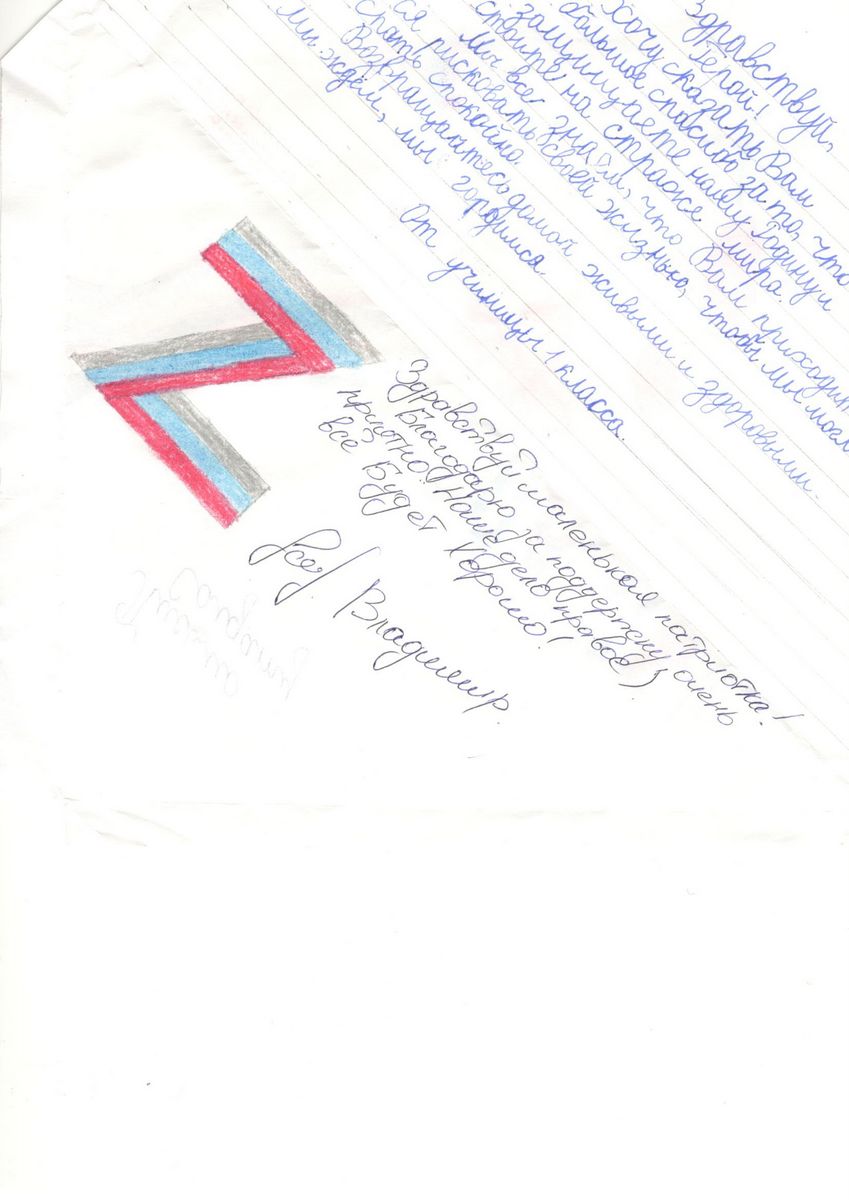 Здравствуй,
Герой!
Хочу сказать Вам
большое спасибо за то, что
защищаете нашу Родину и
стоите на страже мира.
Мы все знаем, что Вам приходит
ся рисковать своей жизнью, чтобы мы могл
спать спокойно
Возвращайтесь домой живыми и здоровыми.
Мы ждём, мы гордимся
От ученицы 1 класса.
Здравствуй маленькая патриотка!
Благодарю за поддержку, очень
приятно! Наше дело правое,
всё Будет Хорошо!
Владимир